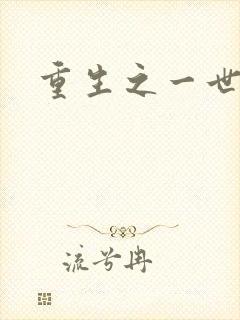 重生之一世
流兮冉